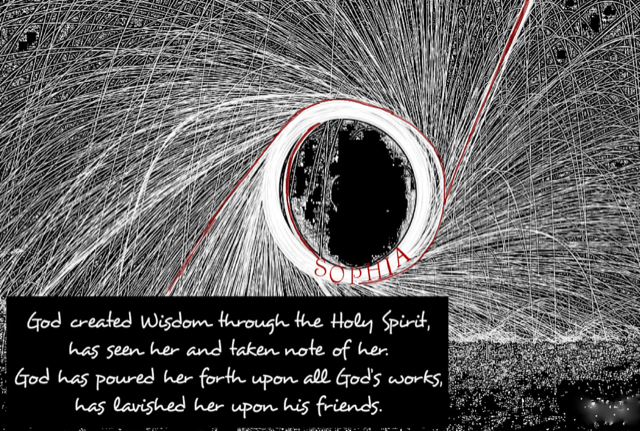 SOPHIA
God created Wisdom through the Holy Spirit,
has seen her and taken note of her.
God has poured her forth upon all God's works,
has lavished her upon his friends.